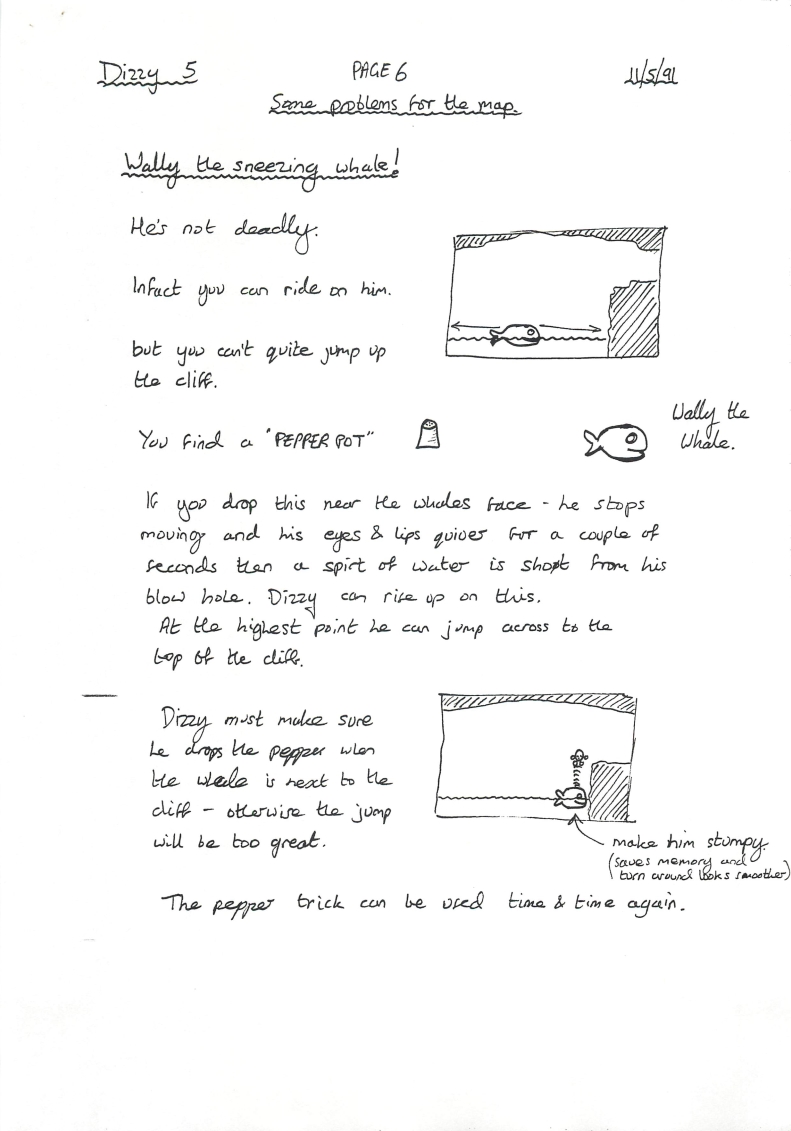 Dizzy 5 PAGE 6 11/5/91
Some problems for the map.
Wally the sneezing whale!
He's not deadly.
Infact you can ride on him.
but you can't quite jump up
the cliff.
You find a "PEPPER POT"
Wally the
Whale.
If you drop this near the whales face - he stops
moving and his eyes & lips quiver for a couple of
seconds then a spirt of water is shot from his
blow hole. Dizzy can rise up on this.
At the highest point he can jump across to the
top of the cliff.
Dizzy must make sure
he drops the pepper when
the whale is next to the
cliff - otherwise the jump
will be too great.
make him stumpy.
(saves memory and
turn around looks smoother)
The pepper trick can be used time & time again.